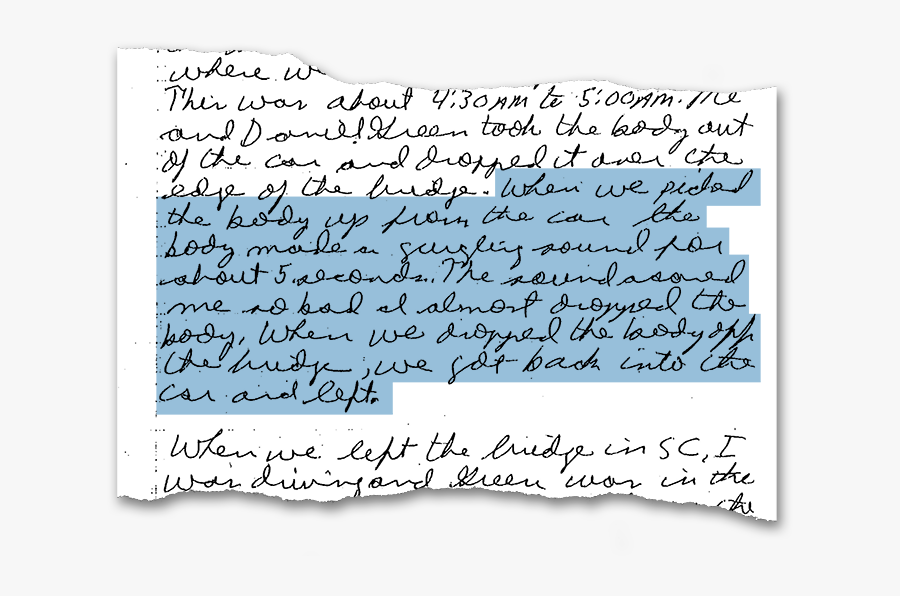 where we
This was about 4:30AM to 5:00AM. Me
and Daniel Green took the body out
of the car and dropped it over the
edge of the bridge. When we picked
the body up from the car the
body made a gurgling sound for
about 5 seconds. The sound scared
me so bad I almost dropped the
body. When we dropped the body off
the bridge, we got back into the
car and left.
When we left the bridge in SC, I
was driving and Green was in the
the